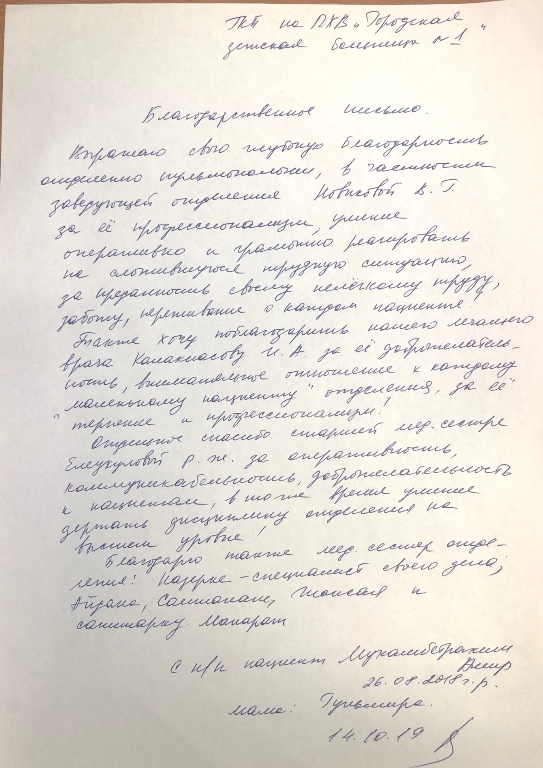 ГКП на ПХВ „Городская
детская больница №1"
Благодарственное письмо.
Выражаю свою глубокую благодарность
отделению пульмонологии, в частности
заведующей отделения Новиковой В. Г.
за её профессионализм, умение
оперативно и грамотно реагировать
на сложившуюся трудную ситуацию,
за преданность своему нелёгкому труду,
заботу, переживание о каждом пациенте!
Также хочу поблагодарить нашего лечащего
врача И. А. за её доброжелатель-
ность, внимательное отношение к каждому
"маленькому пациенту" отделения, за её
терпение и профессионализм!
Отдельное спасибо старшей мед. сестре
Елеукуловой Р. Ж. за оперативность,
коммуникабельность, доброжелательность
к пациентам, в тоже время умение
держать дисциплину отделения на
высшем уровне!
Благодарю также мед. сестер отде-
ления: Назерке - специалист своего дела;
и
санитарку Манарат
с н/п пациент Мухамбетрахим
26.08.2018г.р.
мама: Гульмира.
14.10.19